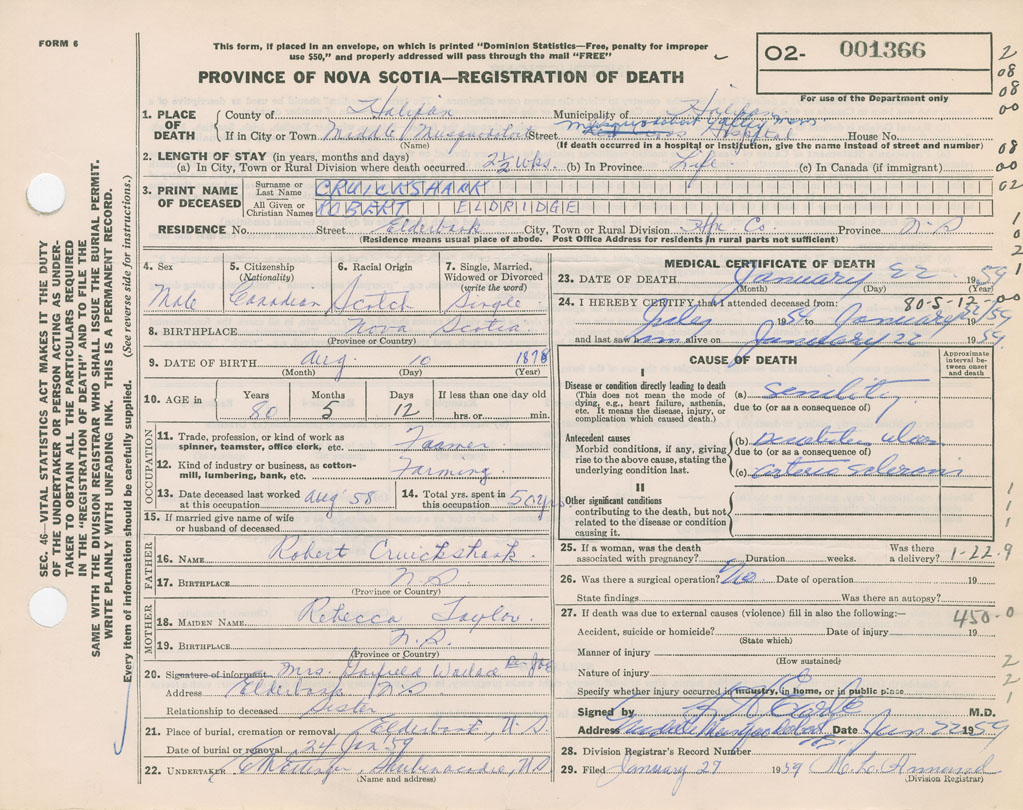 FORM 6
This form, if placed in an envelope, on which is printed "Dominion Statistics—Free, penalty for improper
use $50," and properly addressed will pass through the mail "FREE"
PROVINCE OF NOVA SCOTIA—REGISTRATION OF DEATH
02- 001366
For use of the Department only
2
08
08
00
08
00
02
1
0
2
1
SEC. 46—VITAL STATISTICS ACT MAKES IT THE DUTY
OF THE UNDERTAKER OR PERSON ACTING AS UNDER-
TAKER TO OBTAIN ALL THE PARTICULARS REQUIRED
IN THE "REGISTRATION OF DEATH" AND TO FILE THE
SAME WITH THE DIVISION REGISTRAR WHO SHALL ISSUE THE BURIAL PERMIT.
WRITE PLAINLY WITH UNFADING INK. THIS IS A PERMANENT RECORD.
Every item of information should be carefully supplied. (See reverse side for instructions.)
1. PLACE OF DEATH
County of Halifax Municipality of Halifax
If in City or Town Middle Musquodoboit Street Musquodoboit Valley Mem Hospital House No.
(Name) (If death occurred in a hospital or institution, give the name instead of street and number)
2. LENGTH OF STAY (in years, months and days)
(a) In City, Town or Rural Division where death occurred 2½ wks. (b) In Province Life (c) In Canada (if immigrant)
3. PRINT NAME OF DECEASED
Surname or Last Name CRUICKSHANK
All Given or Christian Names ROBERT ELDRIDGE
RESIDENCE No. Street Elderbank City, Town or Rural Division Hfx. Co. Province N.S
(Residence means usual place of abode. Post Office Address for residents in rural parts not sufficient)
4. Sex Male
5. Citizenship (Nationality) Canadian
6. Racial Origin Scotch
7. Single, Married, Widowed or Divorced (write the word) Single
8. BIRTHPLACE Nova Scotia
(Province or Country)
9. DATE OF BIRTH Aug 10 1878
(Month) (Day) (Year)
10. AGE in Years 80 Months 5 Days 12 If less than one day old hrs. or min.
OCCUPATION
11. Trade, profession, or kind of work as spinner, teamster, office clerk, etc. Farmer
12. Kind of industry or business, as cotton-mill, lumbering, bank, etc. Farming
13. Date deceased last worked at this occupation Aug '58
14. Total yrs. spent in this occupation 50 yrs.
15. If married give name of wife or husband of deceased
FATHER
16. NAME Robert Cruickshank
17. BIRTHPLACE N.S
(Province or Country)
MOTHER
18. MAIDEN NAME Rebecca Taylor
19. BIRTHPLACE N.S.
(Province or Country)
20. Signature of informant Mrs. Garfield Wallace
Address Elderbank N.S
Relationship to deceased Sister
21. Place of burial, cremation or removal Elderbank, N.S
Date of burial or removal 24 Jan. 59
22. UNDERTAKER Shubenacadie, N.S
(Name and address)
MEDICAL CERTIFICATE OF DEATH
23. DATE OF DEATH January 22 1959
(Month) (Day) (Year)
80-5-12-00
24. I HEREBY CERTIFY that I attended deceased from:
July 1954 to January 22/59
and last saw him alive on January 22 1959.
CAUSE OF DEATH
Approximate interval between onset and death
I
Disease or condition directly leading to death
(This does not mean the mode of dying, e.g., heart failure, asthenia, etc. It means the disease, injury, or complication which caused death.)
(a) senility
due to (or as a consequence of)
Antecedent causes
Morbid conditions, if any, giving rise to the above cause, stating the underlying condition last.
(b) Decubitus ulcers
due to (or as a consequence of)
(c) arterio sclerosis
II
Other significant conditions contributing to the death, but not related to the disease or condition causing it.
1
1
1
25. If a woman, was the death associated with pregnancy? Duration weeks. Was there a delivery?
1-22-9
26. Was there a surgical operation? No Date of operation 19
State findings Was there an autopsy?
27. If death was due to external causes (violence) fill in also the following:—
450-0
Accident, suicide or homicide? Date of injury 19
(State which)
Manner of injury
(How sustained)
Nature of injury
Specify whether injury occurred in industry, in home, or in public place
2
2
1
Signed by M.D.
Address Middle Musquodoboit Date Jan 22 1959
28. Division Registrar's Record Number
29. Filed January 29 1959
(Division Registrar)